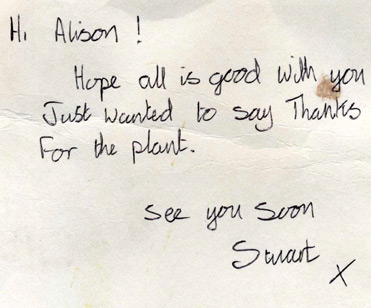 Hi Alison !
Hope all is good with you
Just wanted to say Thanks
For the plant.
See you soon
Stuart
X